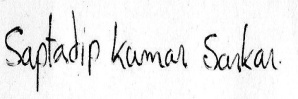 Saptadip kumar Sarkar.